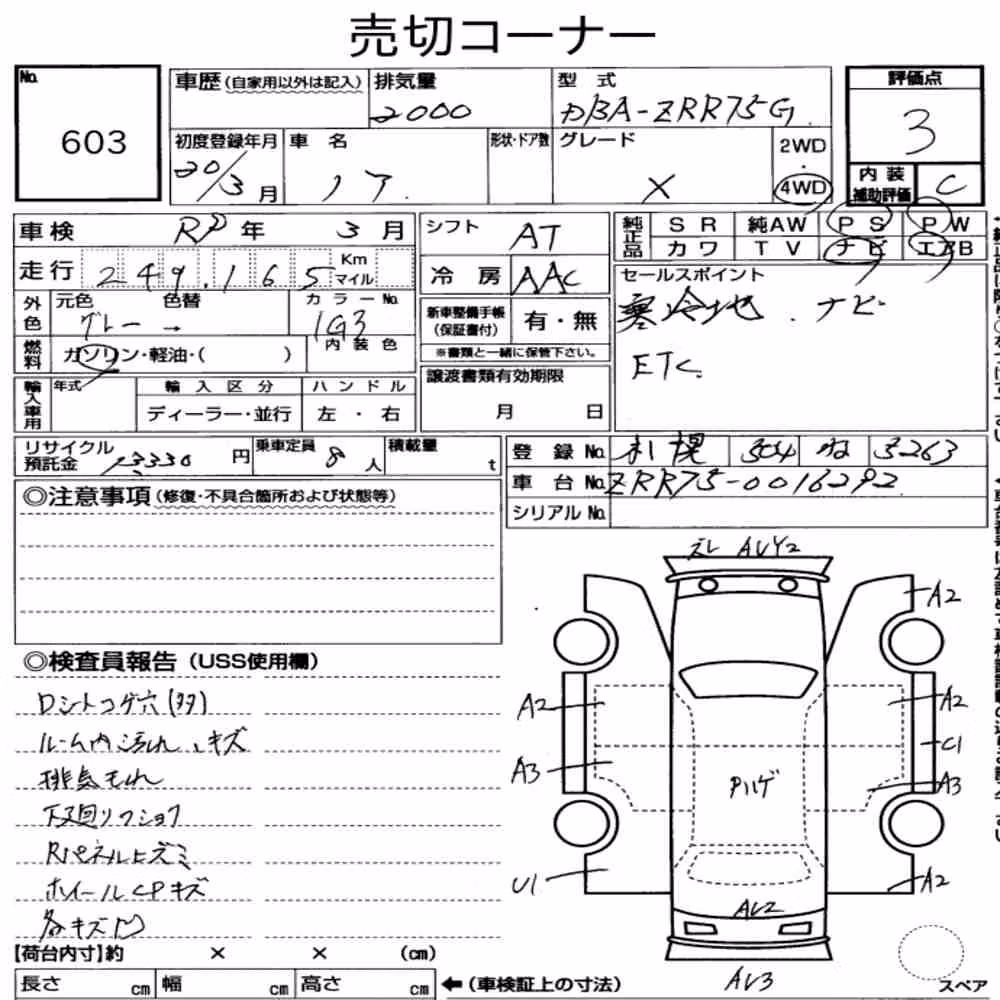 売切コーナー
No.
603
車歴(自家用以外は記入)
排気量
2000
型 式
DBA-ZRR75G
評価点
3
初度登録年月
20/3月
車 名
ノア
形状・ドア数
グレード
X
2WD
・
4WD
内 装
補助評価
C
車検
年 3 月
走行
249,165
Km
マイル
シフト
AT
冷 房
AAC
純正品
S R
純AW
P S
P W
カワ
T V
ナビ
エアB
外色
元色
色替
グレー →
カラーNo.
1G3
内 装 色
燃料
ガソリン・軽油・( )
新車整備手帳
(保証書付)
有・無
※書類と一緒に保管下さい。
セールスポイント
寒冷地 . ナビ
ETC.
輸入車用
年式
輸 入 区 分
ディーラー・並行
ハ ン ド ル
左 ・ 右
譲渡書類有効期限
月 日
リサイクル
預託金
13330 円
乗車定員
8 人
積載量
t
登 録 No.
札幌 304 ね 3263
車 台 No.
ZRR75-0016292
シリアルNo.
◎注意事項(修復・不具合箇所および状態等)
◎検査員報告(USS使用欄)
Dシートコゲ穴(多)
ルーム内汚れ、キズ
排気もれ
下廻りフショク
Rパネルヒズミ
ホイールCPキズ
各キズ凹
ズレ AUY2
A2
A2
A2
C1
A3
A3
Pハゲ
U1
A2
AU2
AU3
【荷台内寸】約 × × (cm)
長さ cm
幅 cm
高さ cm
←(車検証上の寸法)
スペア